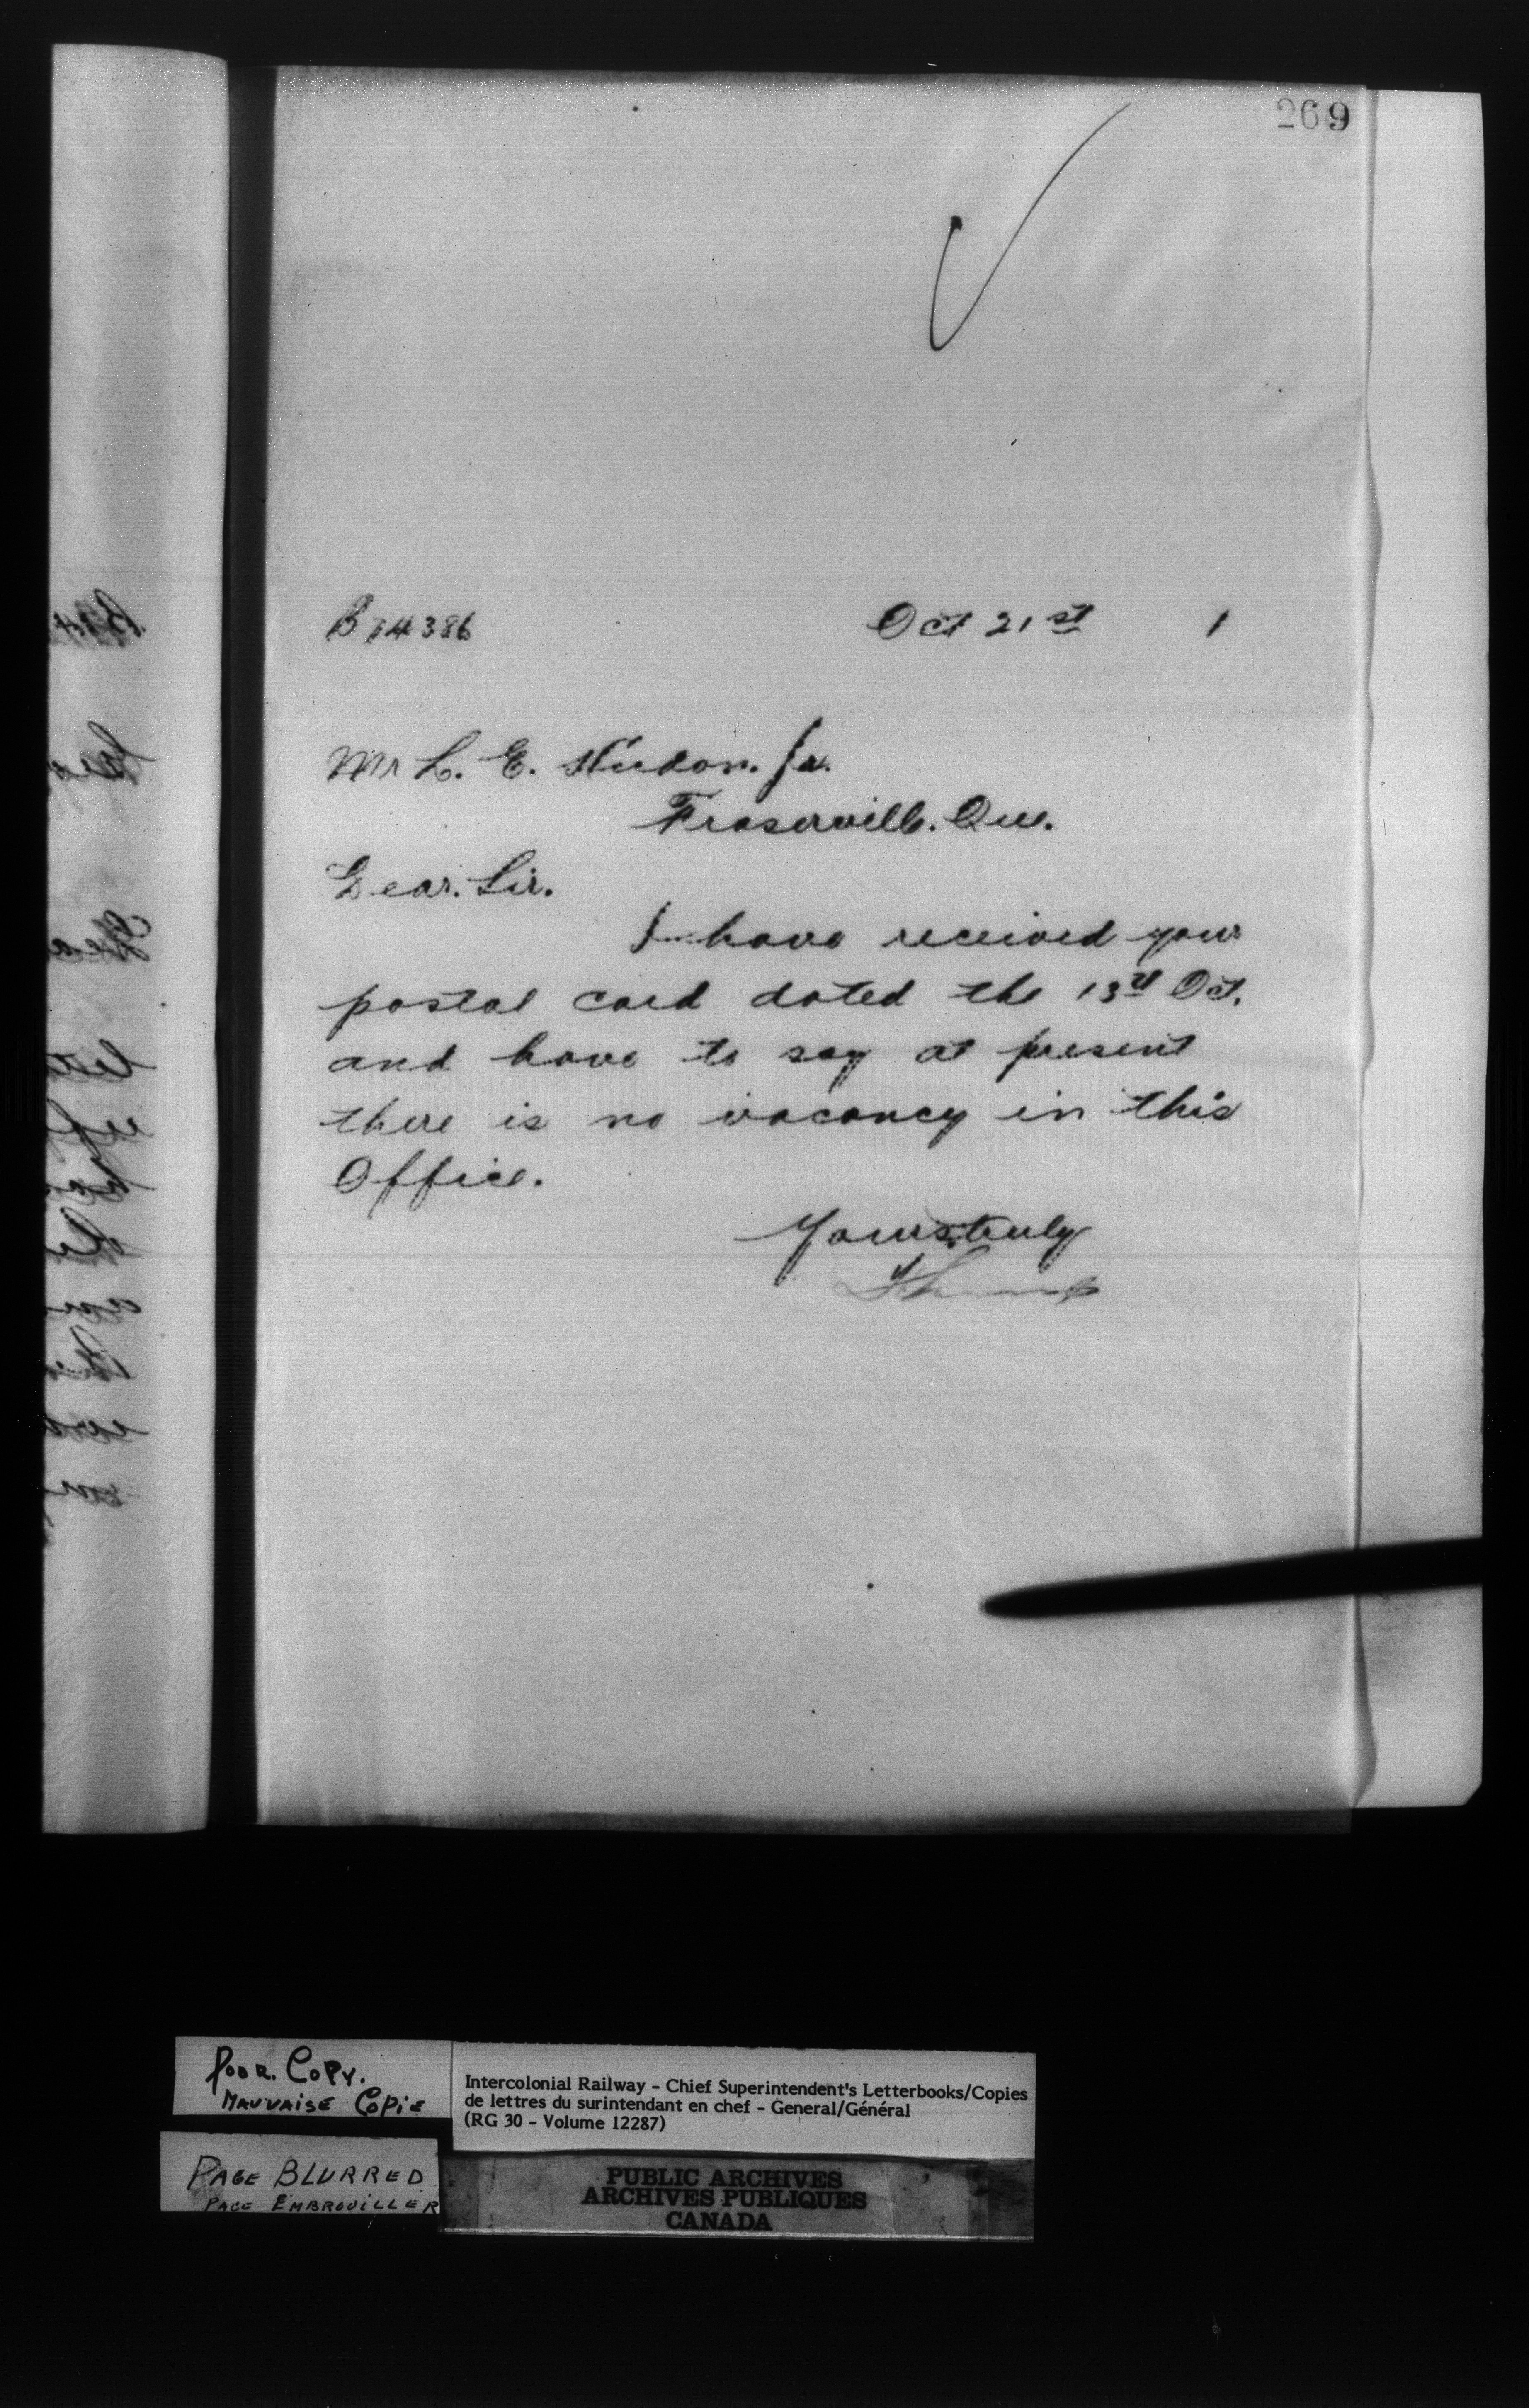 269
B 74386 Oct 21st 1
Mr L. E. Hudon. Jr.
Fraserville. Que.
Dear. Sir.
I have received your
postal card dated the 13th Oct.
and have to say at present
there is no vacancy in this
Office.
Yours truly
POOR. COPY.
MAUVAISE COPIE
PAGE BLURRED
PAGE EMBROUILLER
Intercolonial Railway - Chief Superintendent's Letterbooks/Copies
de lettres du surintendant en chef - General/Général
(RG 30 - Volume 12287)
PUBLIC ARCHIVES
ARCHIVES PUBLIQUES
CANADA